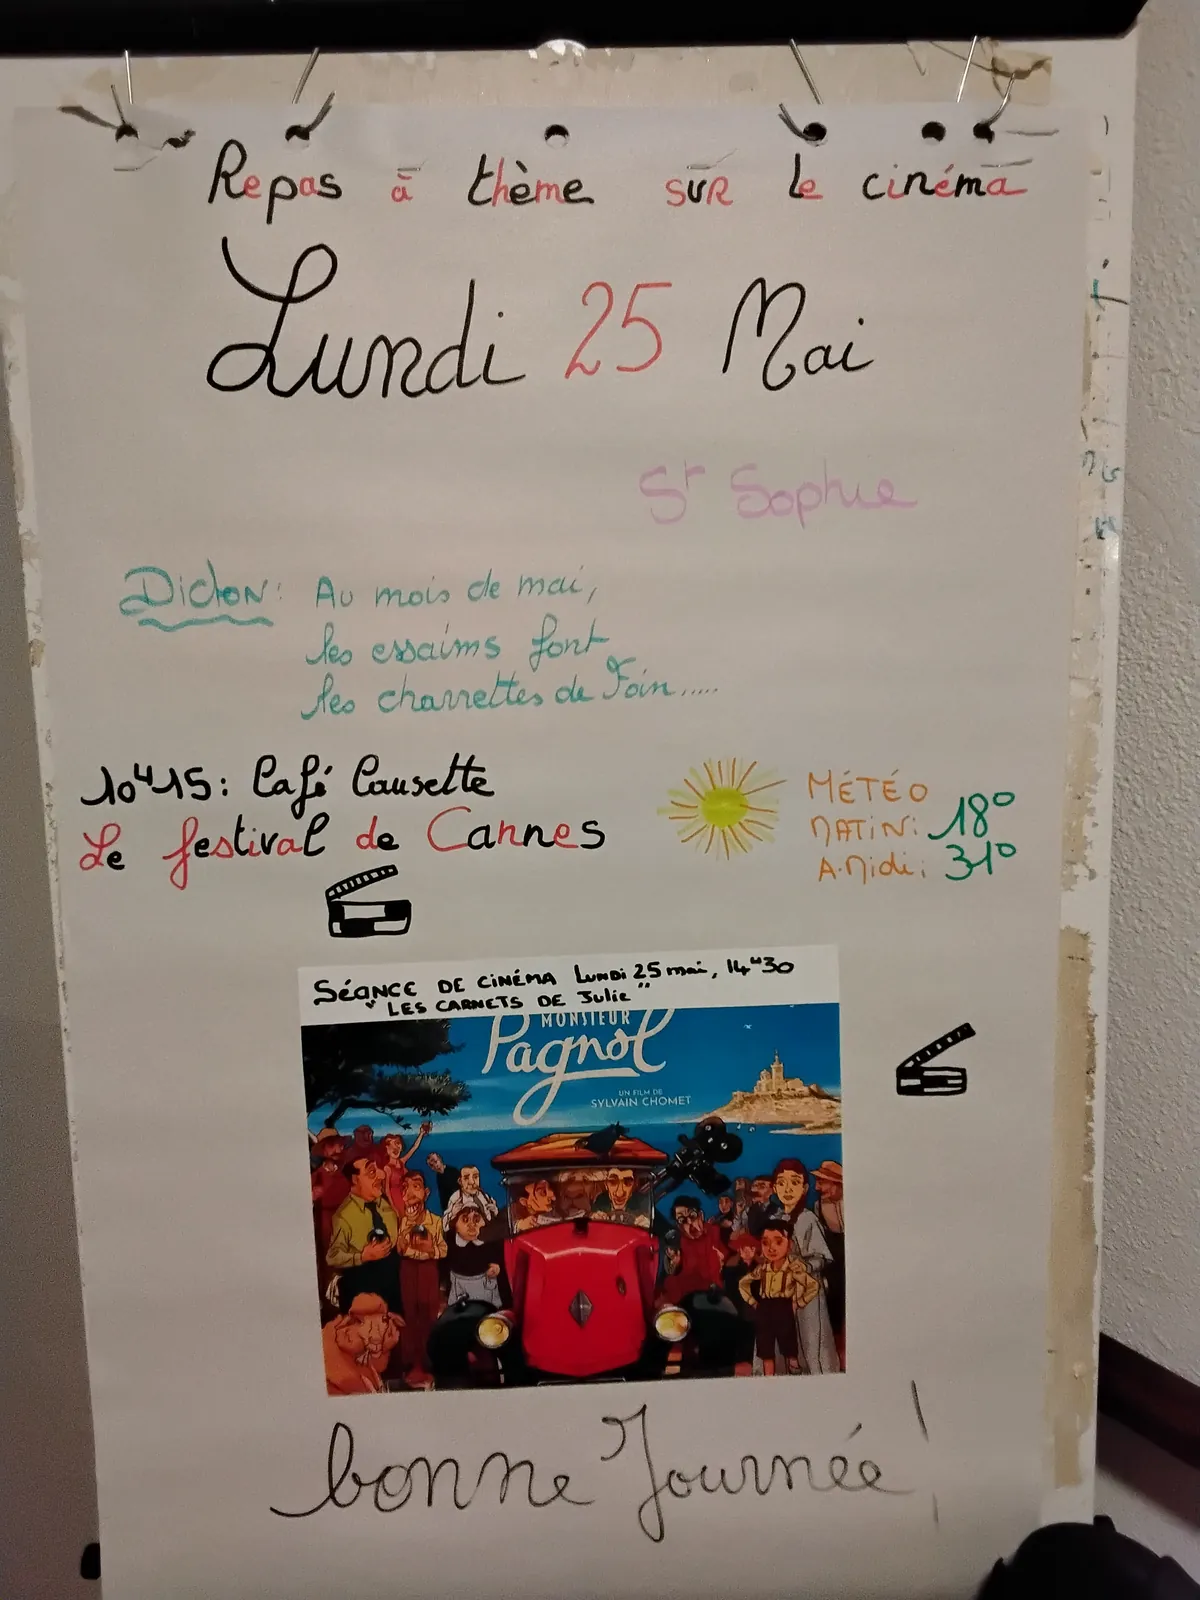 Repas à thème sur le cinéma
Lundi 25 Mai
St Sophie
Dicton: Au mois de mai,
les essaims font
les charrettes de Foin.....
10H15: Café Causette
Le festival de Cannes
MÉTÉO
MATIN: 18°
A.Midi: 31°
SÉANCE DE CINÉMA LUNDI 25 mai, 14H30
"LES CARNETS DE Julie"
MONSIEUR
Pagnol
UN FILM DE
SYLVAIN CHOMET
bonne Journée!